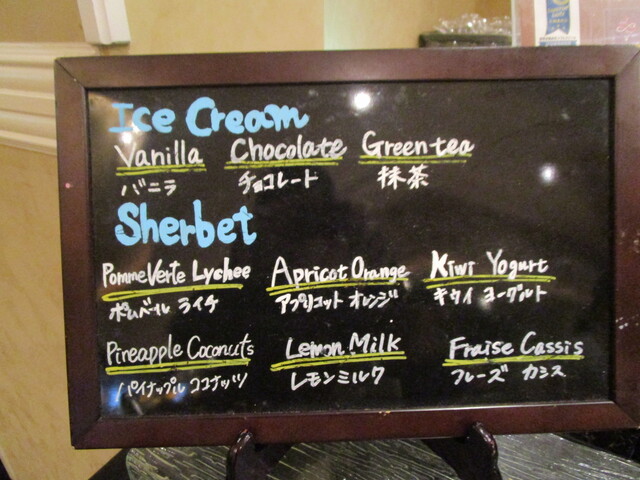 Ice Cream
Vanilla Chocolate Green tea
バニラ チョコレート 抹茶
Sherbet
Pomme Verte Lychee Apricot Orange Kiwi Yogurt
ポムベール ライチ アプリコット オレンジ キウイ ヨーグルト
Pineapple Coconuts Lemon Milk Fraise Cassis
パイナップル ココナッツ レモンミルク フレーズ カシス